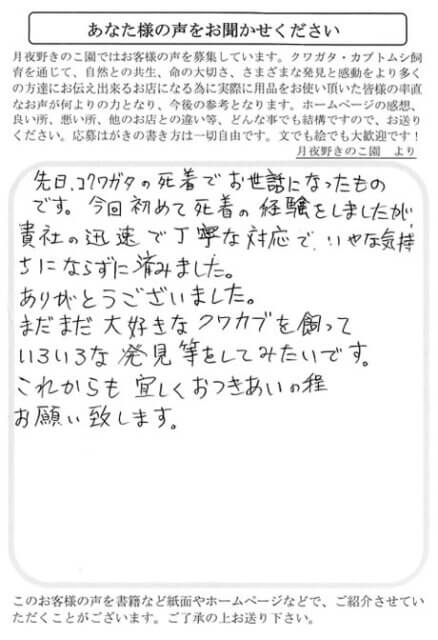 あなた様の声をお聞かせください
月夜野きのこ園ではお客様の声を募集しています。クワガタ・カブトムシ飼
育を通じて、自然との共生、命の大切さ、さまざまな発見と感動をより多く
の方達にお伝え出来るお店になる為に実際に用品をお使い頂いた皆様の率直
なお声が何よりの力となり、今後の参考となります。ホームページの感想、
良い所、悪い所、他のお店との違い等、どんな事でも結構ですので、お送り
ください。応募はがきの書き方は一切自由です。文でも絵でも大歓迎です！
月夜野きのこ園　より
先日、コクワガタの死着でお世話になったもの
です。今回初めて死着の経験をしましたが、
貴社の迅速で丁寧な対応で、いやな気持
ちにならずに済みました。
ありがとうございました。
まだまだ大好きなクワカブを飼って
いろいろな発見等をしてみたいです。
これからも宜しくおつきあいの程
お願い致します。
このお客様の声を書籍など紙面やホームページなどで、ご紹介させてい
ただくことがございます。ご了承の上お送り下さい。